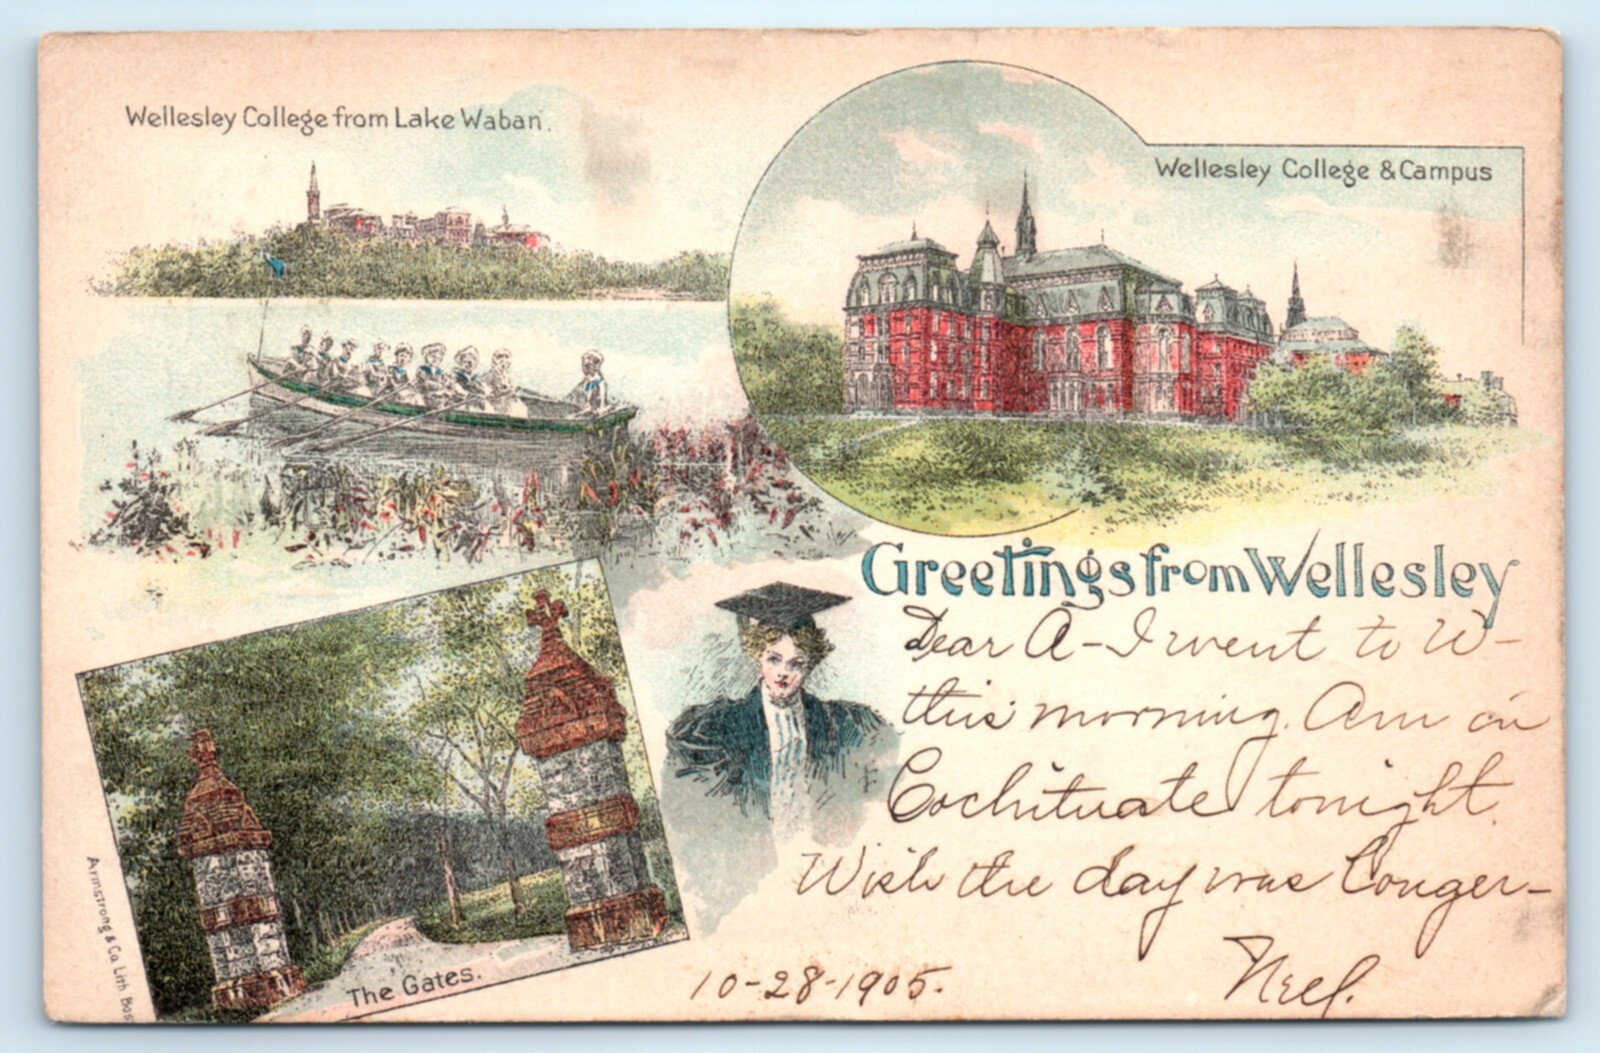 Wellesley College from Lake Waban.
Wellesley College & Campus
Greetings from Wellesley
Dear A - I went to W-
this morning. Am in
Cochituate tonight.
Wish the day was longer -
Nell.
10-28-1905.
The Gates.
Armstrong & Co. Lith. Bos